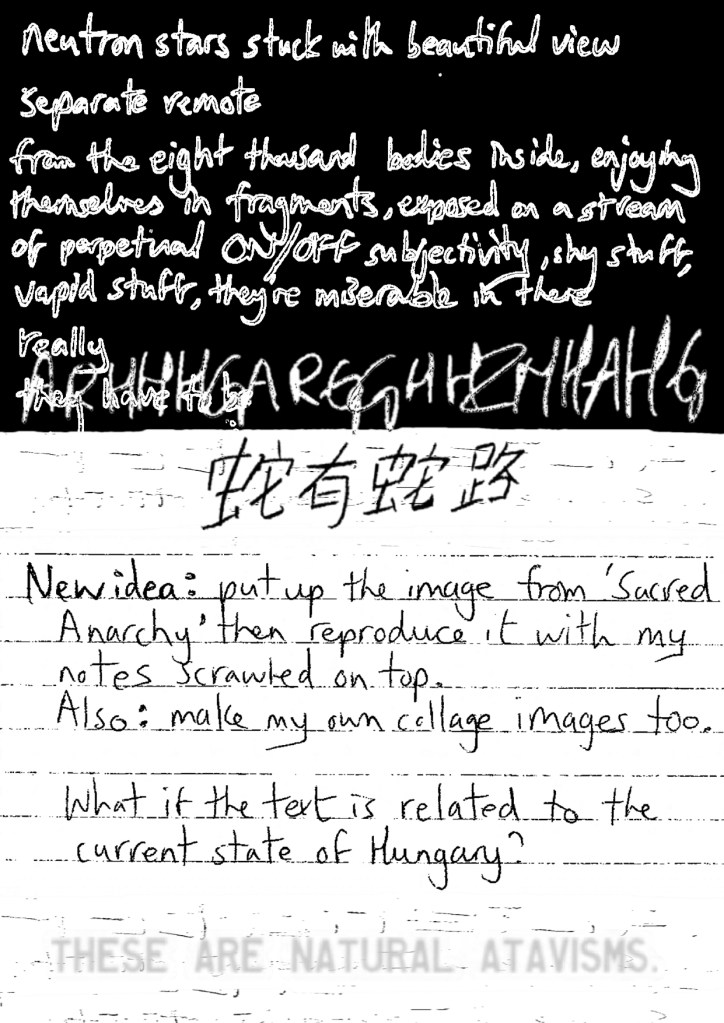 neutron stars stuck with beautiful view
separate remote
from the eight thousand bodies inside, enjoying
themselves in fragments, exposed on a stream
of perpetual ON/OFF subjectivity, shy stuff,
vapid stuff, they're miserable in there
really
they have to be
蛇有蛇路
New idea: put up the image from 'Sacred
Anarchy' then reproduce it with my
notes scrawled on top.
Also: make my own collage images too.
What if the text is related to the
current state of Hungary?
THESE ARE NATURAL ATAVISMS.